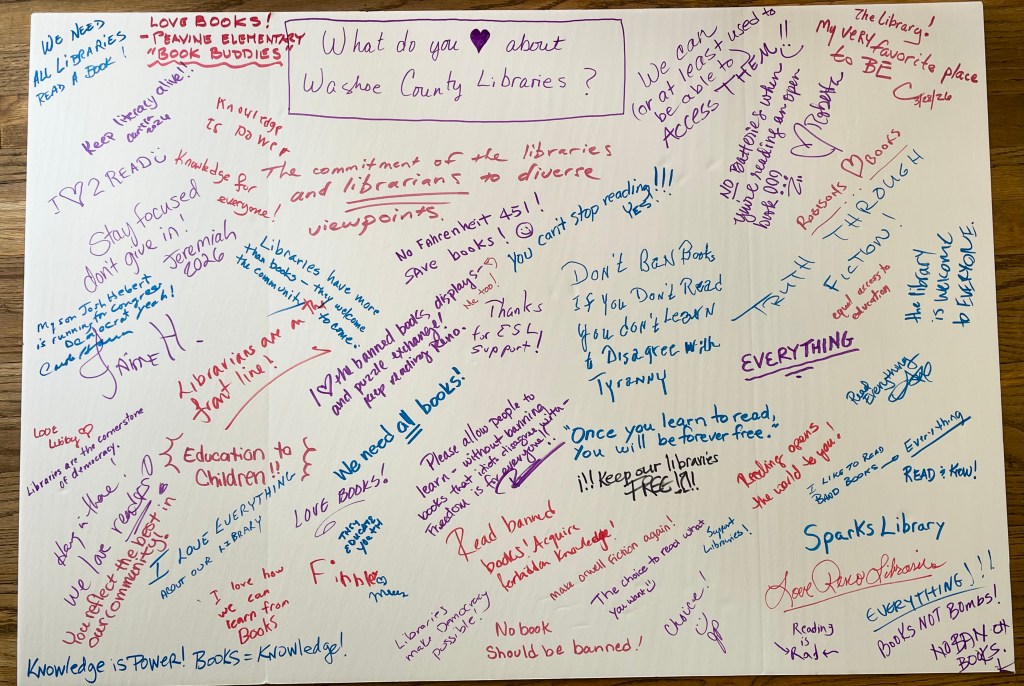 WE NEED
ALL LIBRARIES
READ A BOOK!
LOVE BOOKS!
- PEAVINE ELEMENTARY
"BOOK BUDDIES"
What do you ♥ about
Washoe County Libraries?
We can
(or at least used to
be able to)
ACCESS THEM!!
The Library!
My very favorite place
to BE
Keep literacy alive!!
2026
Knowledge
is power
NO Batteries when
you're reading an open
book
♡ Roberta
I ♡ 2 READ
Knowledge for
everyone!
The commitment of the libraries
and librarians to diverse
viewpoints.
ROBISONS ♡ BOOKS
Stay focused
don't give in!
Jeremiah
2026
No Fahrenheit 451!
SAVE books!
You can't stop reading!!!
YES!
TRUTH
THROUGH
FICTION!
Libraries have more
than books - they welcome
the community to come.
equal access to
education
the library
is WELCOME
to EVERYONE.
My son Josh Hebert
is running for Congress
Democrat yeah!
JAIME H.
Librarians are on the
front line!
I ♡ the banned books, displays -
and puzzle exchange!
Keep reading Reno.
Me too!
Thanks
for ESL
Support!
DON'T BAN BOOKS
IF YOU DON'T READ
YOU DON'T LEARN
to DISAGREE WITH
TYRANNY
EVERYTHING
Read
Everything
Love
Libby ♡
Libraries are the cornerstone
of democracy.
Education to
Children!!
We need all books!
Please allow people to
learn - without banning
books that idiots disagree with -
Freedom is for everyone!!
"Once you learn to read,
You will be forever free."
¡!! Keep our libraries
FREE!
Reading opens
the world to you!
I LIKE TO READ
BAND BOOKS → Everything
READ & KNOW!
Hang in there!
We love readers
You reflect the best in
our community!
I LOVE EVERYTHING
ABOUT OUR LIBRARY
LOVE BOOKS!
THEY
EDUCATE
YOUTH
Read banned
books! Acquire
forbidden knowledge!
Make orwell fiction again!
Support
Libraries!
The choice to read what
you want
Sparks Library
Love Reno Libraries
I love how
we can
learn from
Books
Libraries
make Democracy
possible!
No book
Should be banned!
Choice!
EVERYTHING!!!
BOOKS NOT BOMBS!
Reading
is
Rad
NO BAN OF
BOOKS.
KNOWLEDGE IS POWER! BOOKS = KNOWLEDGE!